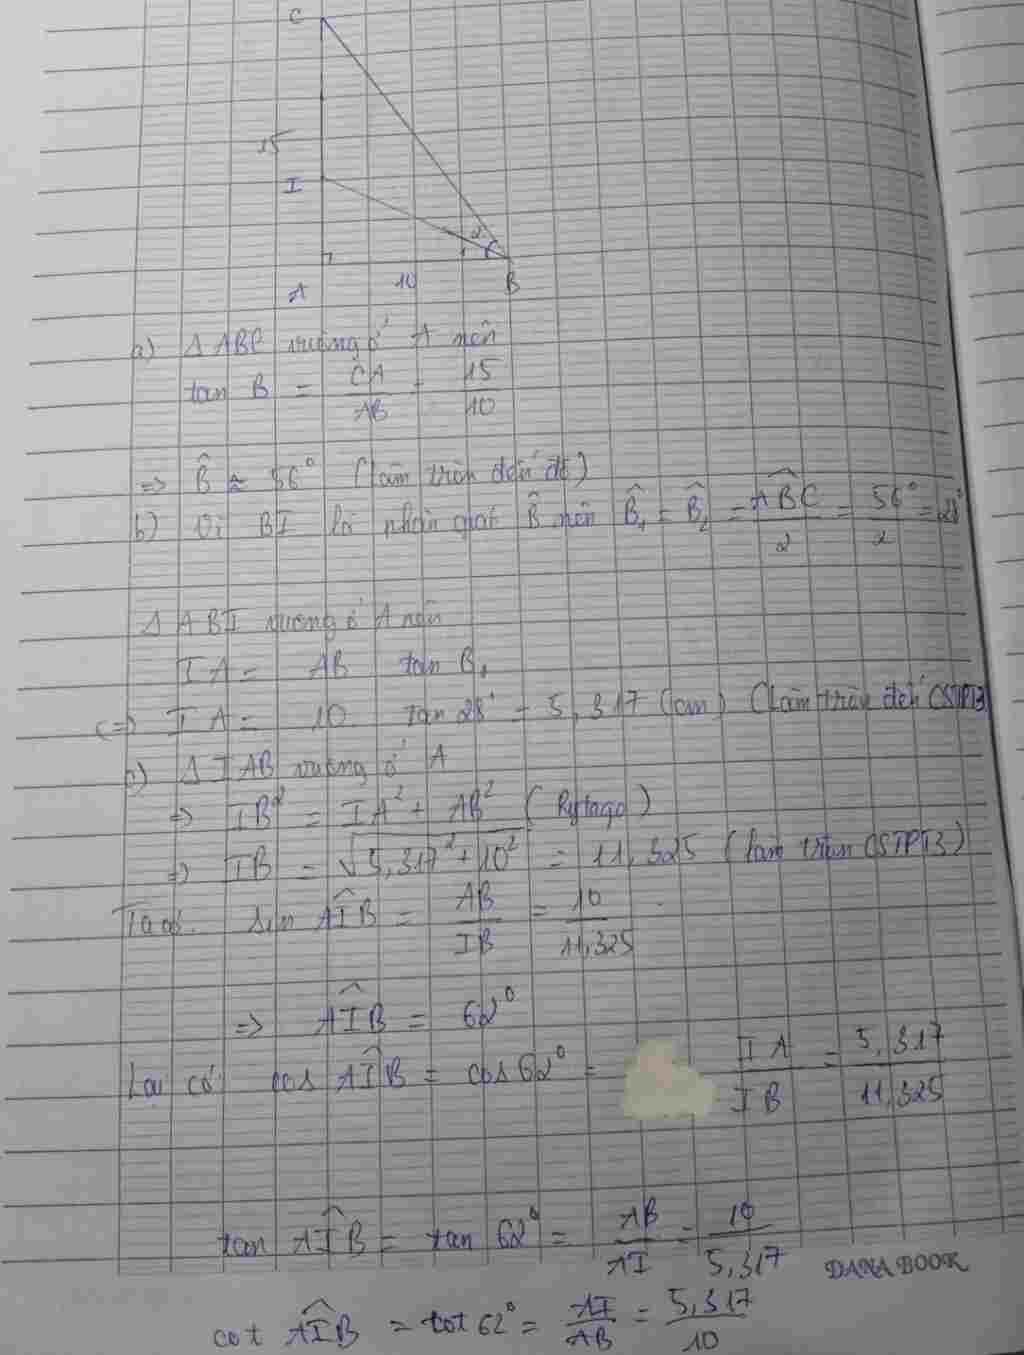 C
15
I
2
1
A 10 B
a) Δ ABC vuông ở A nên
tan B = CA/AB = 15/10
=> B̂ ≈ 56° (làm tròn đến độ)
b) Vì BI là phân giác B̂ nên B̂₁ = B̂₂ = ABC/2 = 56°/2 = 28°
Δ ABI vuông ở A nên
IA = AB tan B₁
(=) IA = 10. tan 28° = 5,317 (cm) (Làm tròn đến CSTPT3)
c) Δ IAB vuông ở A
=> IB² = IA² + AB² (Pytago)
=> IB = √5,317² + 10² = 11,325 (làm tròn CSTPT3)
Ta có: sin AIB = AB/IB = 10/11,325
=> AIB = 62°
Lại có cos AIB = cos 62° = IA/IB = 5,317/11,325
tan AIB = tan 62° = AB/AI = 10/5,317
DANABOOK
cot AIB = cot 62° = AI/AB = 5,317/10